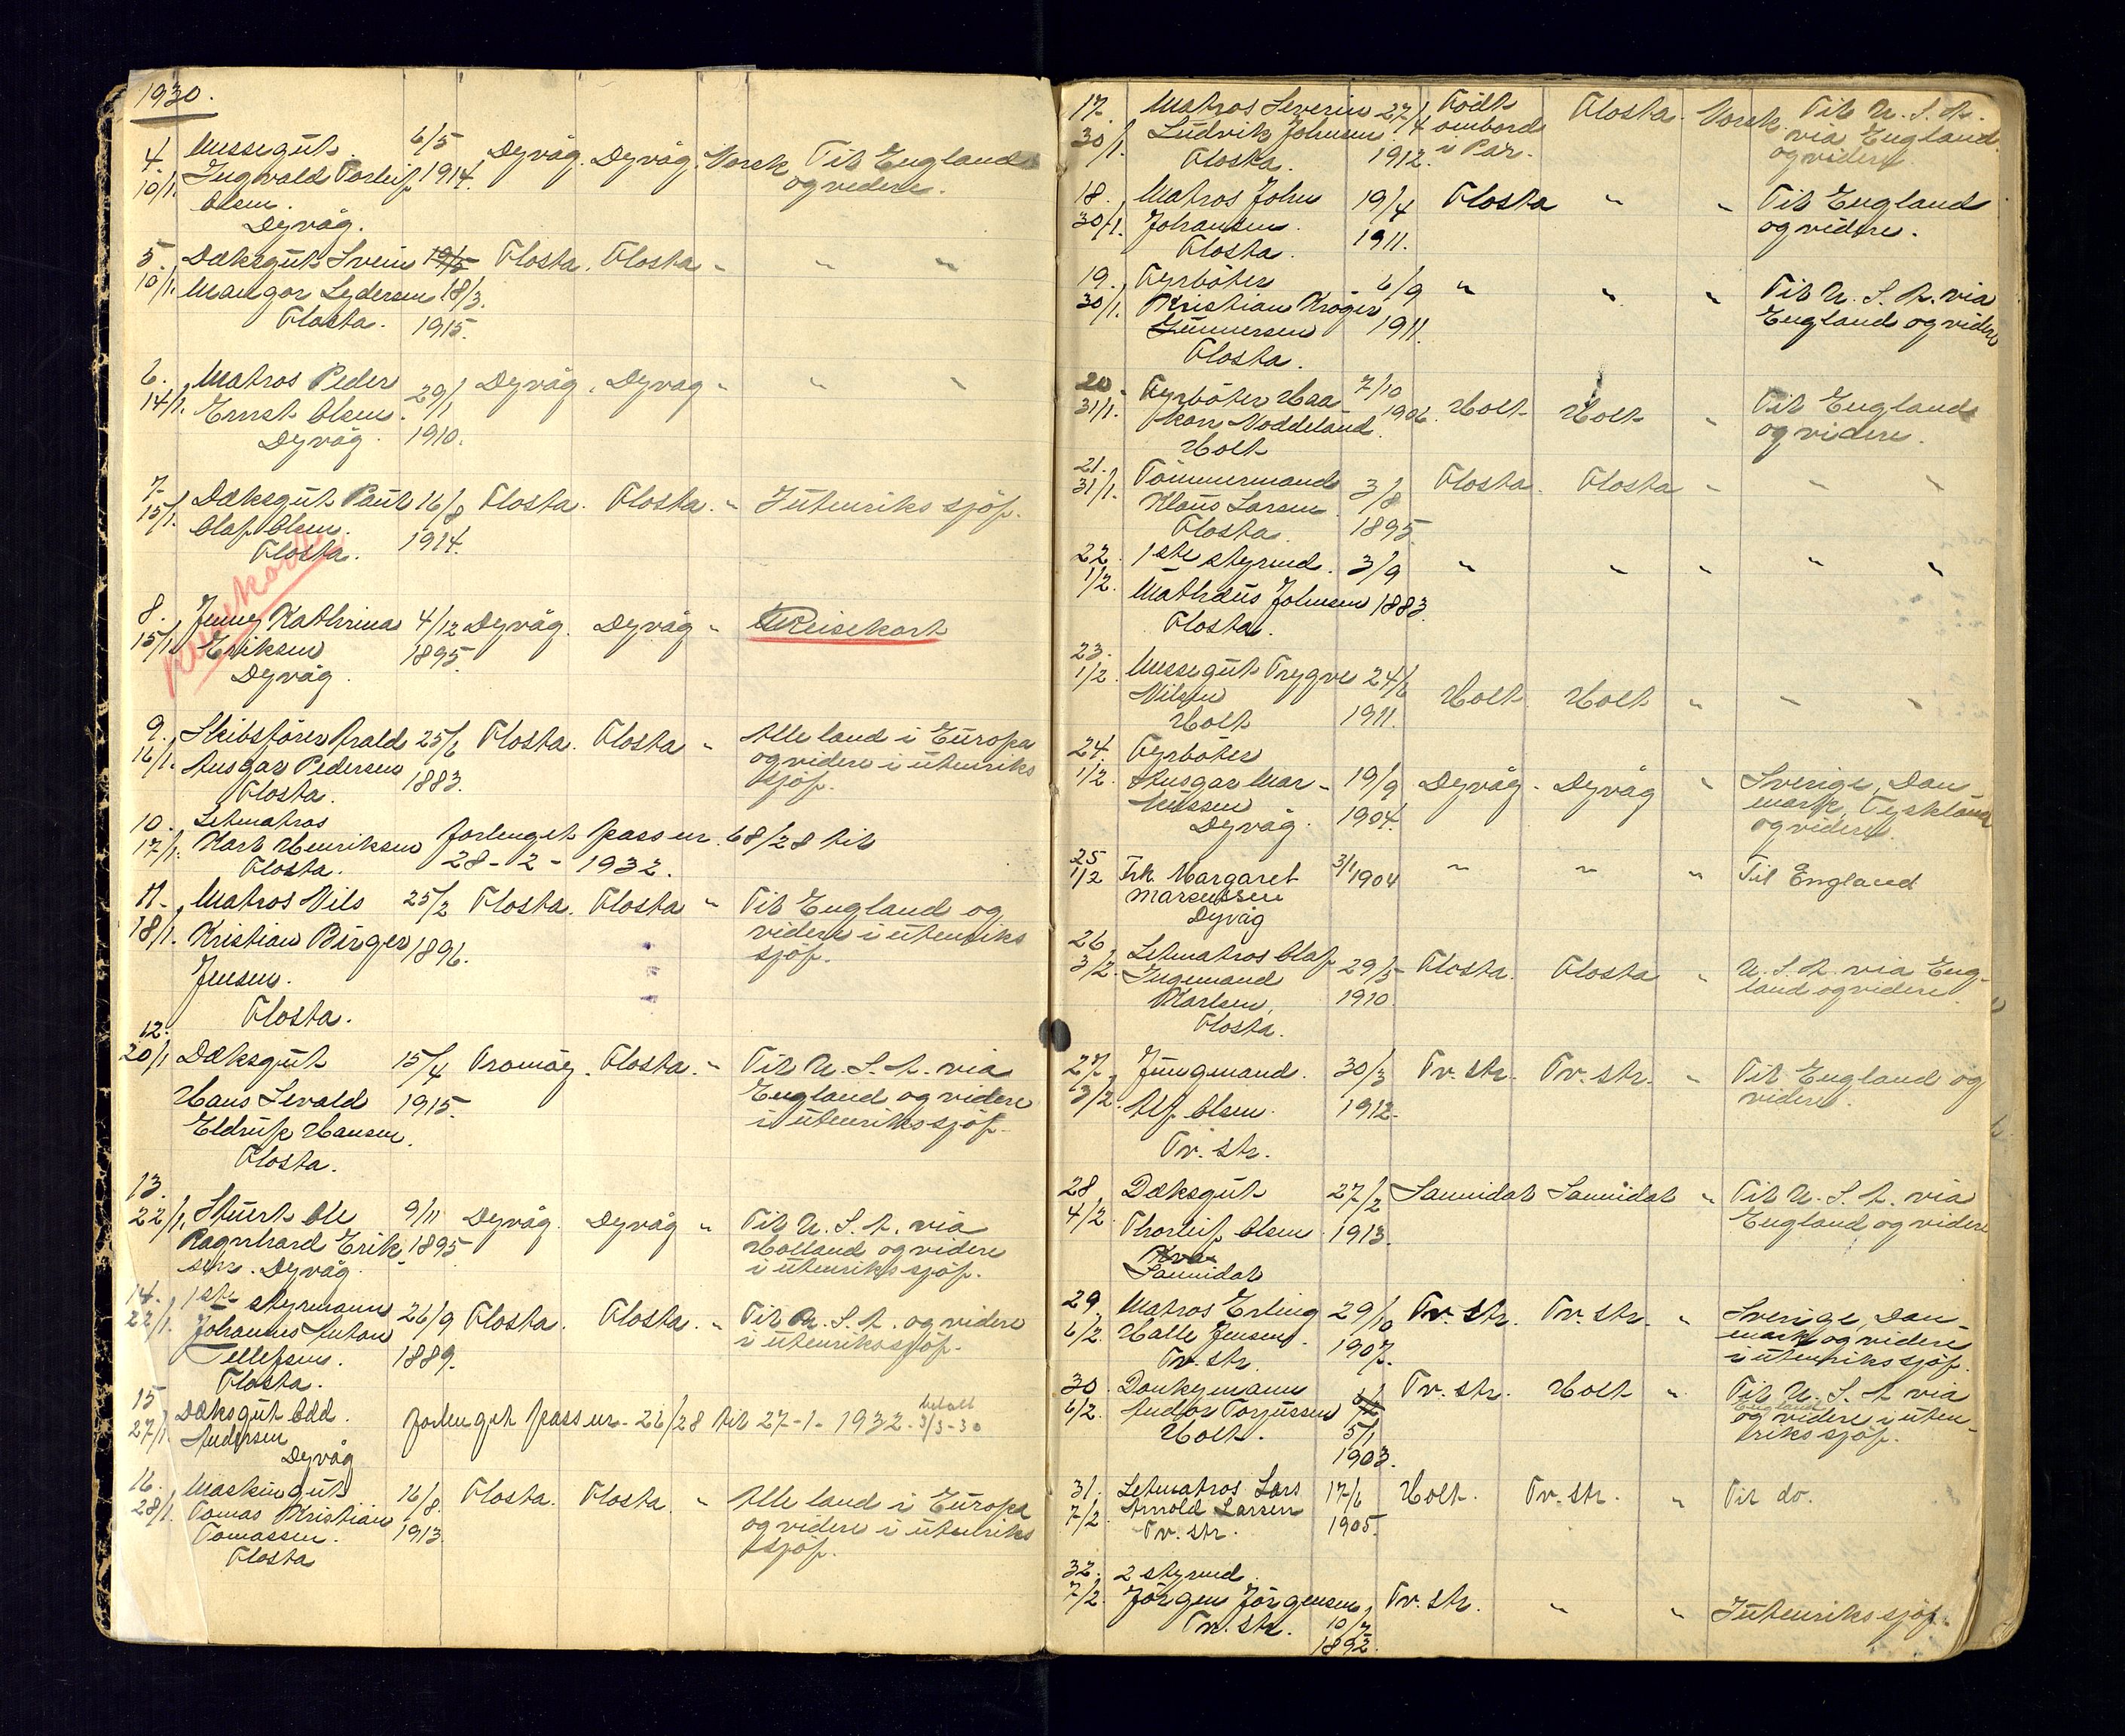 1930.
4. Messegut 6/5 Dyvåg. Dyvåg. Norsk Til England
10/1. Ingvald Torleif 1914. og videre.
Olsen.
Dyvåg.
5. Dæksgut Svein 19/5 Flosta. Flosta. " " "
10/1. Mangor Sydersen 18/3.
Flosta. 1915.
6. Matros Peder 29/1 Dyvåg. Dyvåg " " "
14/1. Ernst Olsen. 1910.
Dyvåg.
7. Dæksgut Paul 16/8 Flosta. Flosta. " Iutenriks sjöf.
15/1. Olaf Olsen. 1914.
Flosta.
8. Jenny Kathrina 4/12 Dyvåg. Dyvåg " Reisekort
15/1. Eriksen 1895.
Dyvåg.
9. Skibsförer Arald 25/6 Flosta. Flosta " Alle land i Europa
16/1. Ansgar Pedersen 1883. og videre i utenriks
Flosta. sjöf.
10. Letmatros
17/1. Karl Henriksen forlenget pass nr. 68/28 til
Flosta. 28-2-1932.
11. Matros Nils 25/2 Flosta. Flosta " Til England og
18/1. Kristian Birger 1896. videre i utenriks
Jensen. sjöf.
Flosta.
12.
20/1 Dæksgut 15/4 Tromöy. Flosta. " Til U. S. A. via
Hans Sevald 1915. England og videre
Eldruf Hansen. i utenriks sjöf.
Flosta.
13.
22/1. Stuert Ole 9/11 Dyvåg. Dyvåg " Til U. S. A. via
Ragnhard Erik- 1895. Holland og videre
sen. Dyvåg. i utenriks sjöf.
14. 1ste styrmann 26/9 Flosta. Flosta. " Til U. S. A. og videre
22/1. Johannes Anton 1889. i utenrikssjöf.
Tellefsen.
Flosta.
15 Dæksgut Odd. forlenget pass nr. 26/28 til 27-1-1932. betalt 3/3-30
27/1. Andersen
Dyvåg
16. Maskingut 16/8. Flosta. Flosta " Alle land i Europa
28/1. Tomas Kristian 1913. og videre i utenriks
Tomassen. sjöf.
Flosta
17. Matros Severin 27/4 Födt Flosta. Norsk. Til U. S. A.
30/1. Ludvik Johnsen 1912. ombord via England
Flosta. i Par. og videre.
18. Matros John 19/4 Flosta " " Til England
30/1. Johansen. 1911. og videre.
Flosta.
19. Fyrböter 6/9 " " " Til U. S. A. via
30/1. Kristian Kröger 1911. England og videre
Gunnersen
Flosta.
20. Fyrböter Haa- 7/10 Holt. Holt " Til England
31/1. kon Noddeland. 1906. og videre.
Holt
21. Tömmermand 3/8 Flosta. Flosta " " "
31/1. Klaus Larsen. 1895.
Flosta.
22. 1ste styrmd. 3/9 " " " " "
1/2. Mathæus Johnsen 1883.
Flosta.
23.
1/2. Messegut Trygve 24/6 Holt. Holt " " "
Nilsen 1911.
Holt
24. Fyrböter
1/2. Ansgar Mar- 19/9 Dyvåg. Dyvåg " Sverige, Dan-
kussen 1904. mark, Tyskland
Dyvåg. og videre.
25 Frk. Margaret 3/1 1904 " " " Til England
1/2 Marcussen
Dyvåg
26 Letmatros Olaf 29/5 Flosta. Flosta " U. S. A. via Eng-
3/2. Ingemand 1910. land og videre.
Karlsen.
Flosta.
27. Jungmand. 30/3 Tv. str. Tv. str. " Til England og
3/2. Alf Olsen. 1912. videre.
Tv. str.
28. Dæksgut 27/2 Sannidal Sannidal " Til U. S. A. via
4/2. Thorleif Olsen 1913. England og videre
Sannidal
29. Matros Erling 29/10 Tv. str. Tv. str. " Sverige, Dan-
6/2. Halle Jensen. 1907. mark og videre
Tv. str. i utenrikssjöf.
30. Donkeymann Tv. str. Holt " Til U. S. A via
6/2. Andor Torjussen 5/1 England og videre i uten-
Holt. 1903. riks sjöf.
31. Letmatros Lars 17/6 Holt. Tv. str. " Til do.
7/2. Arnold Larsen 1905.
Tv. str.
32. 2 styrmd.
7/2. Jörgen Jörgensen, Tv. str. " " Iutenriks sjöf.
Tv. str. 10/7
1892.